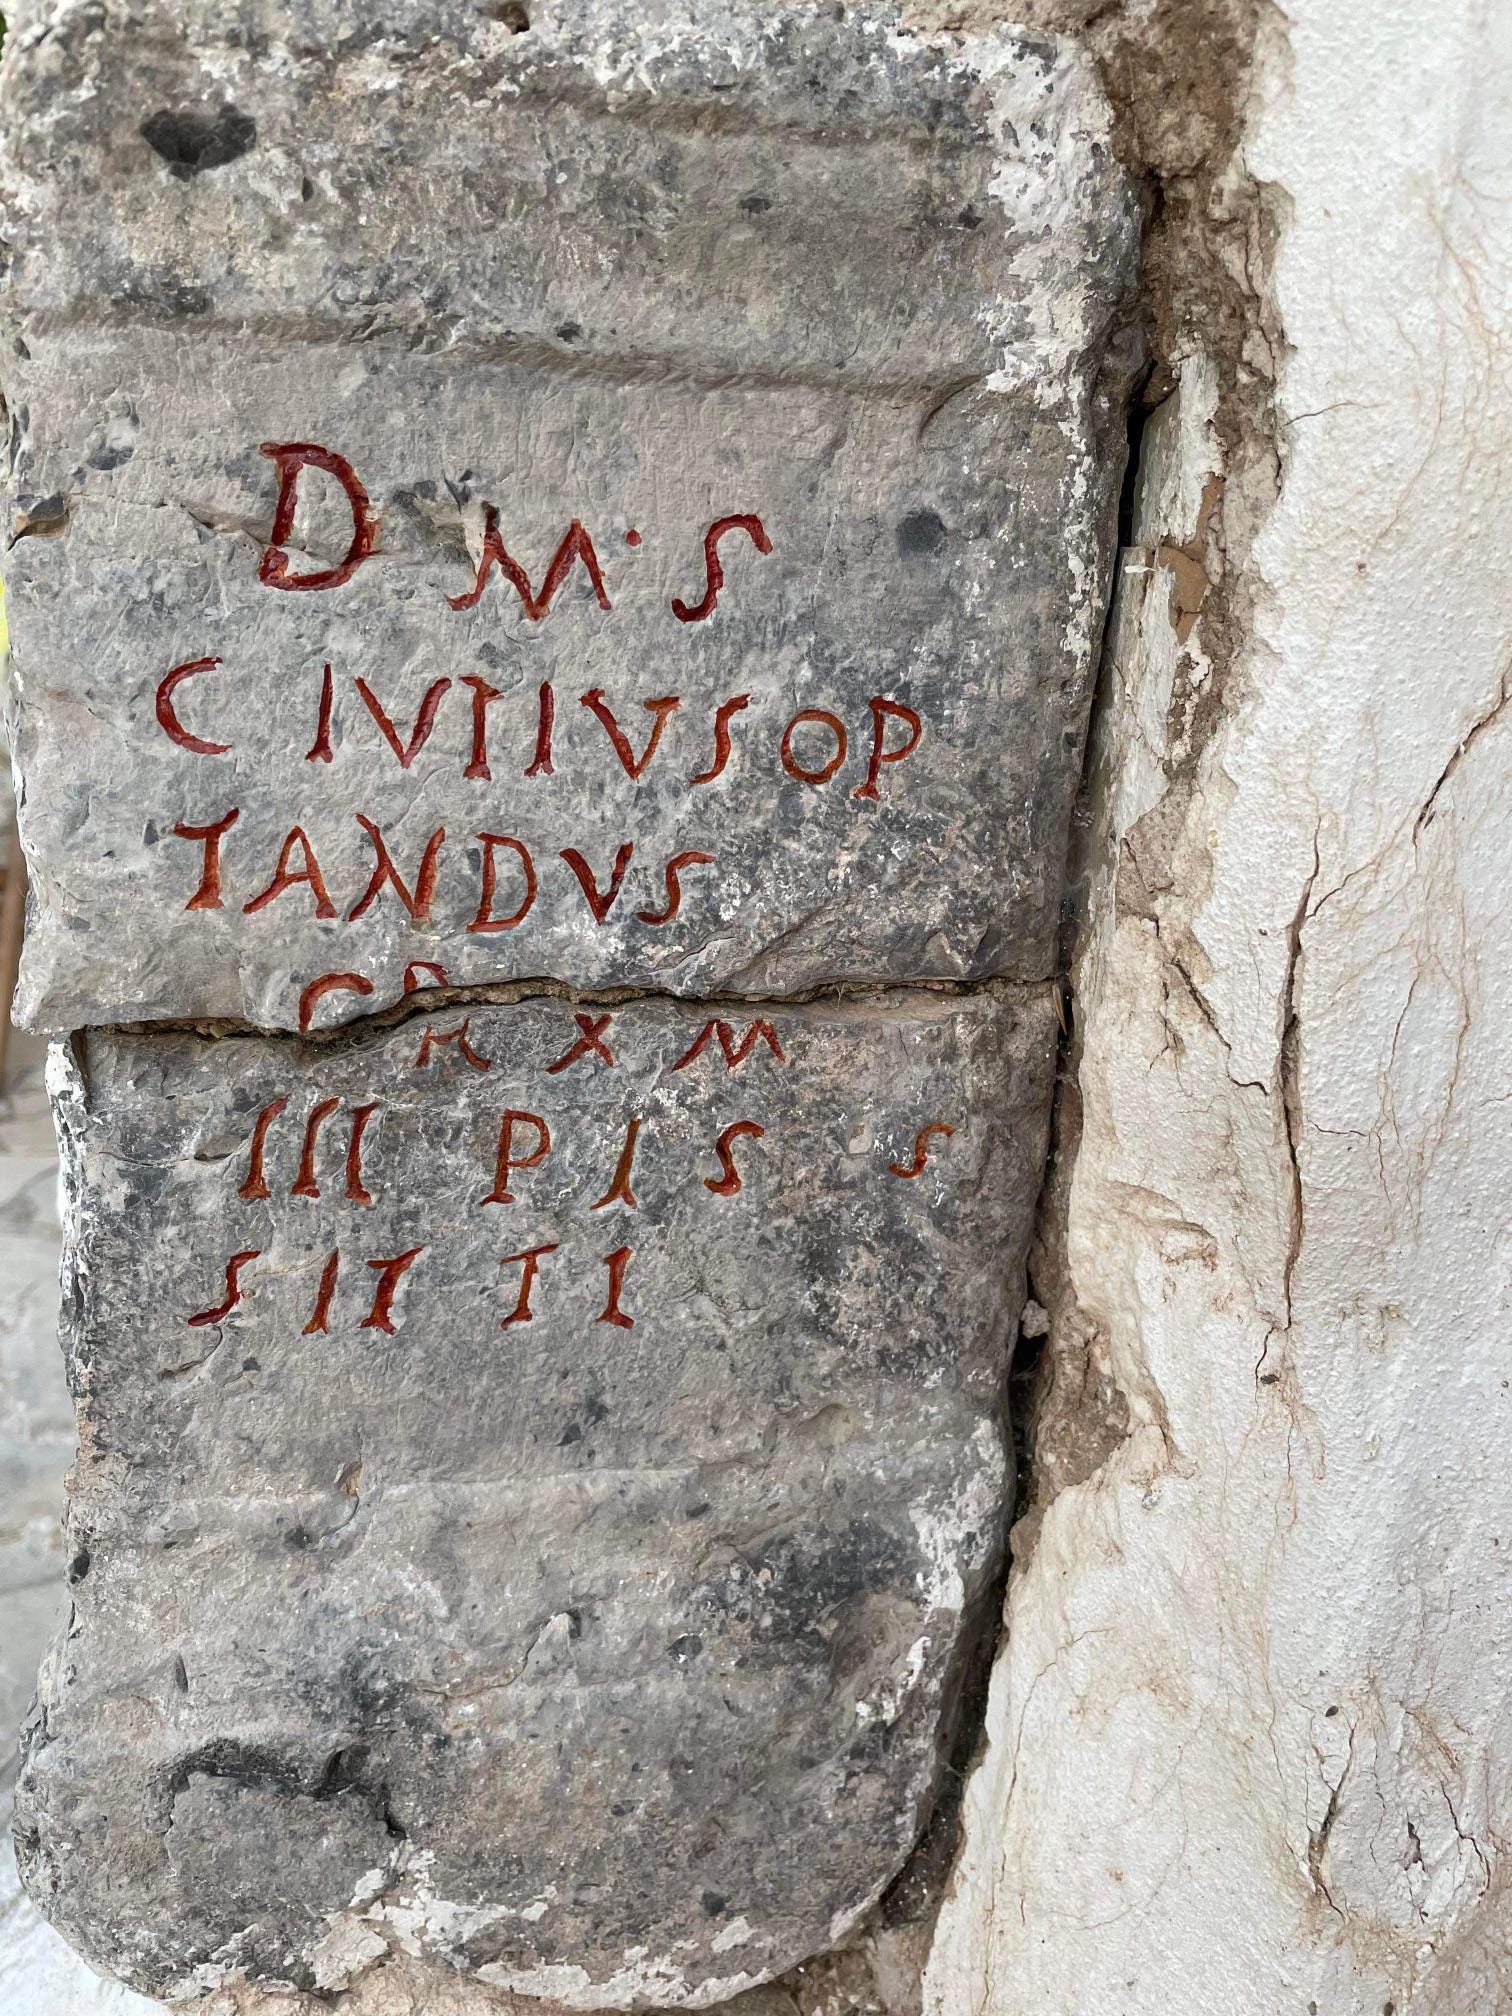 D M · S
C IVTIVSOP
TANDVS
CR X M
III P I S S
SIT TI